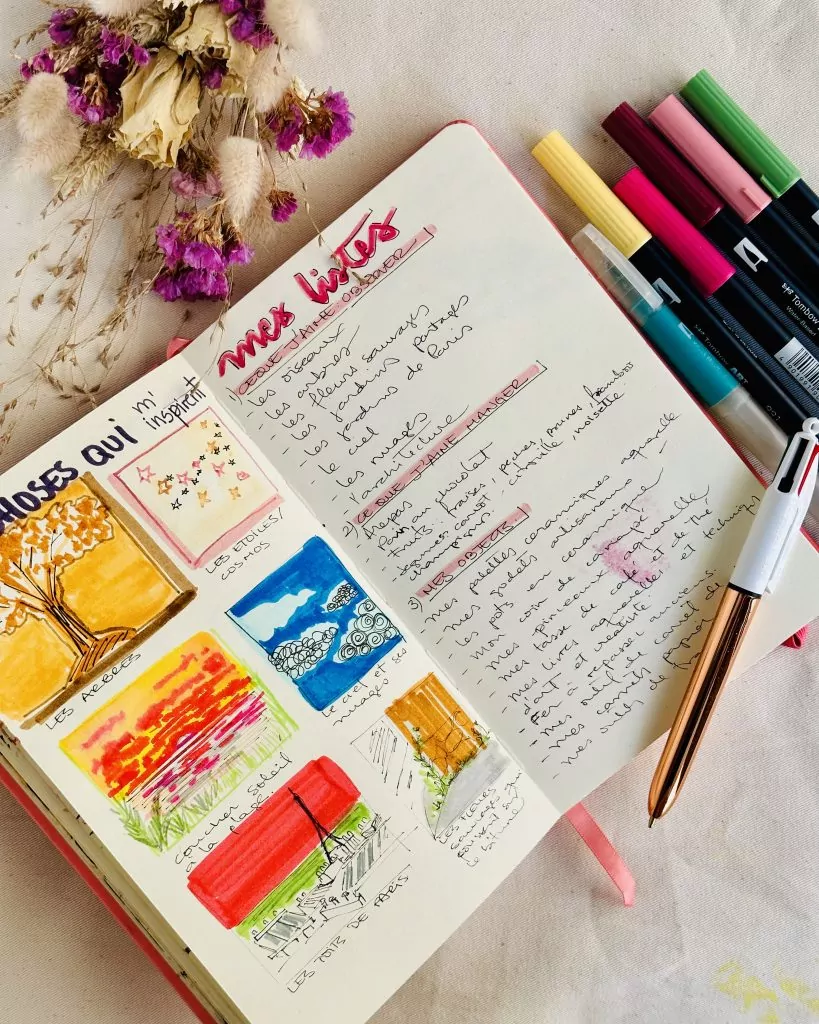 CHOSES QUI m'
inspirent
LES ETOILES/
COSMOS
LES ARBRES
le ciel et ses
nuages
coucher soleil
à la plage
Les fleurs
sauvages qui
poussent
le bitume
LES TOITS DE PARIS
mes listes
1) CE QUE J'AIME OBSERVER
- les oiseaux
- les arbres
- les fleurs sauvages
- les jardins partagés
- les jardins de Paris
- le ciel
- les nuages
- l'architecture
2) CE QUE J'AIME MANGER
- Pain au chocolat
- fruits: fraises, pêches, prunes,
- Légumes: carott, citrouille, noisette.
- champignons
3) MES OBJECTS
- mes palettes céramiques aquarelle
- mes godets artisanaux
- les pots en céramique
- Mon coin de
- mes pinceaux aquarelle
- mes tasse de café et de thé
- mes livres aquarelle et technique
d'art et
- Fer à repasser anciens.
- mes outil de
- mes carnets
- mes outils de
Tombow